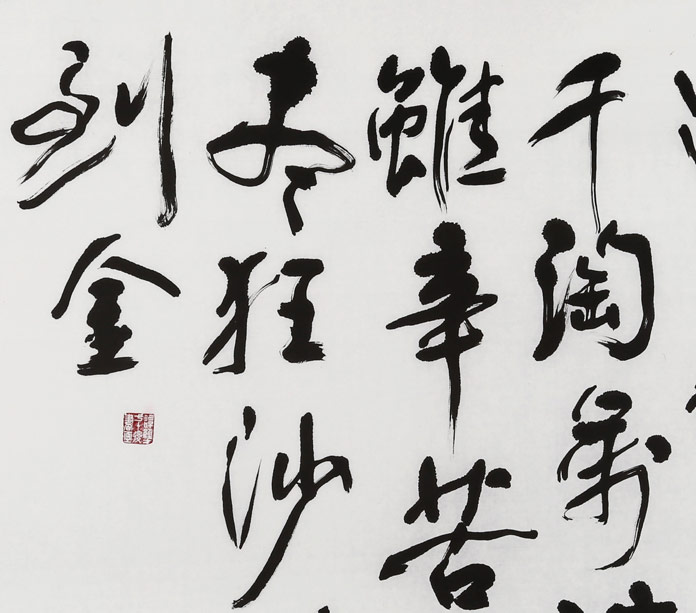 千淘萬
雖辛苦
尽狂沙
到金